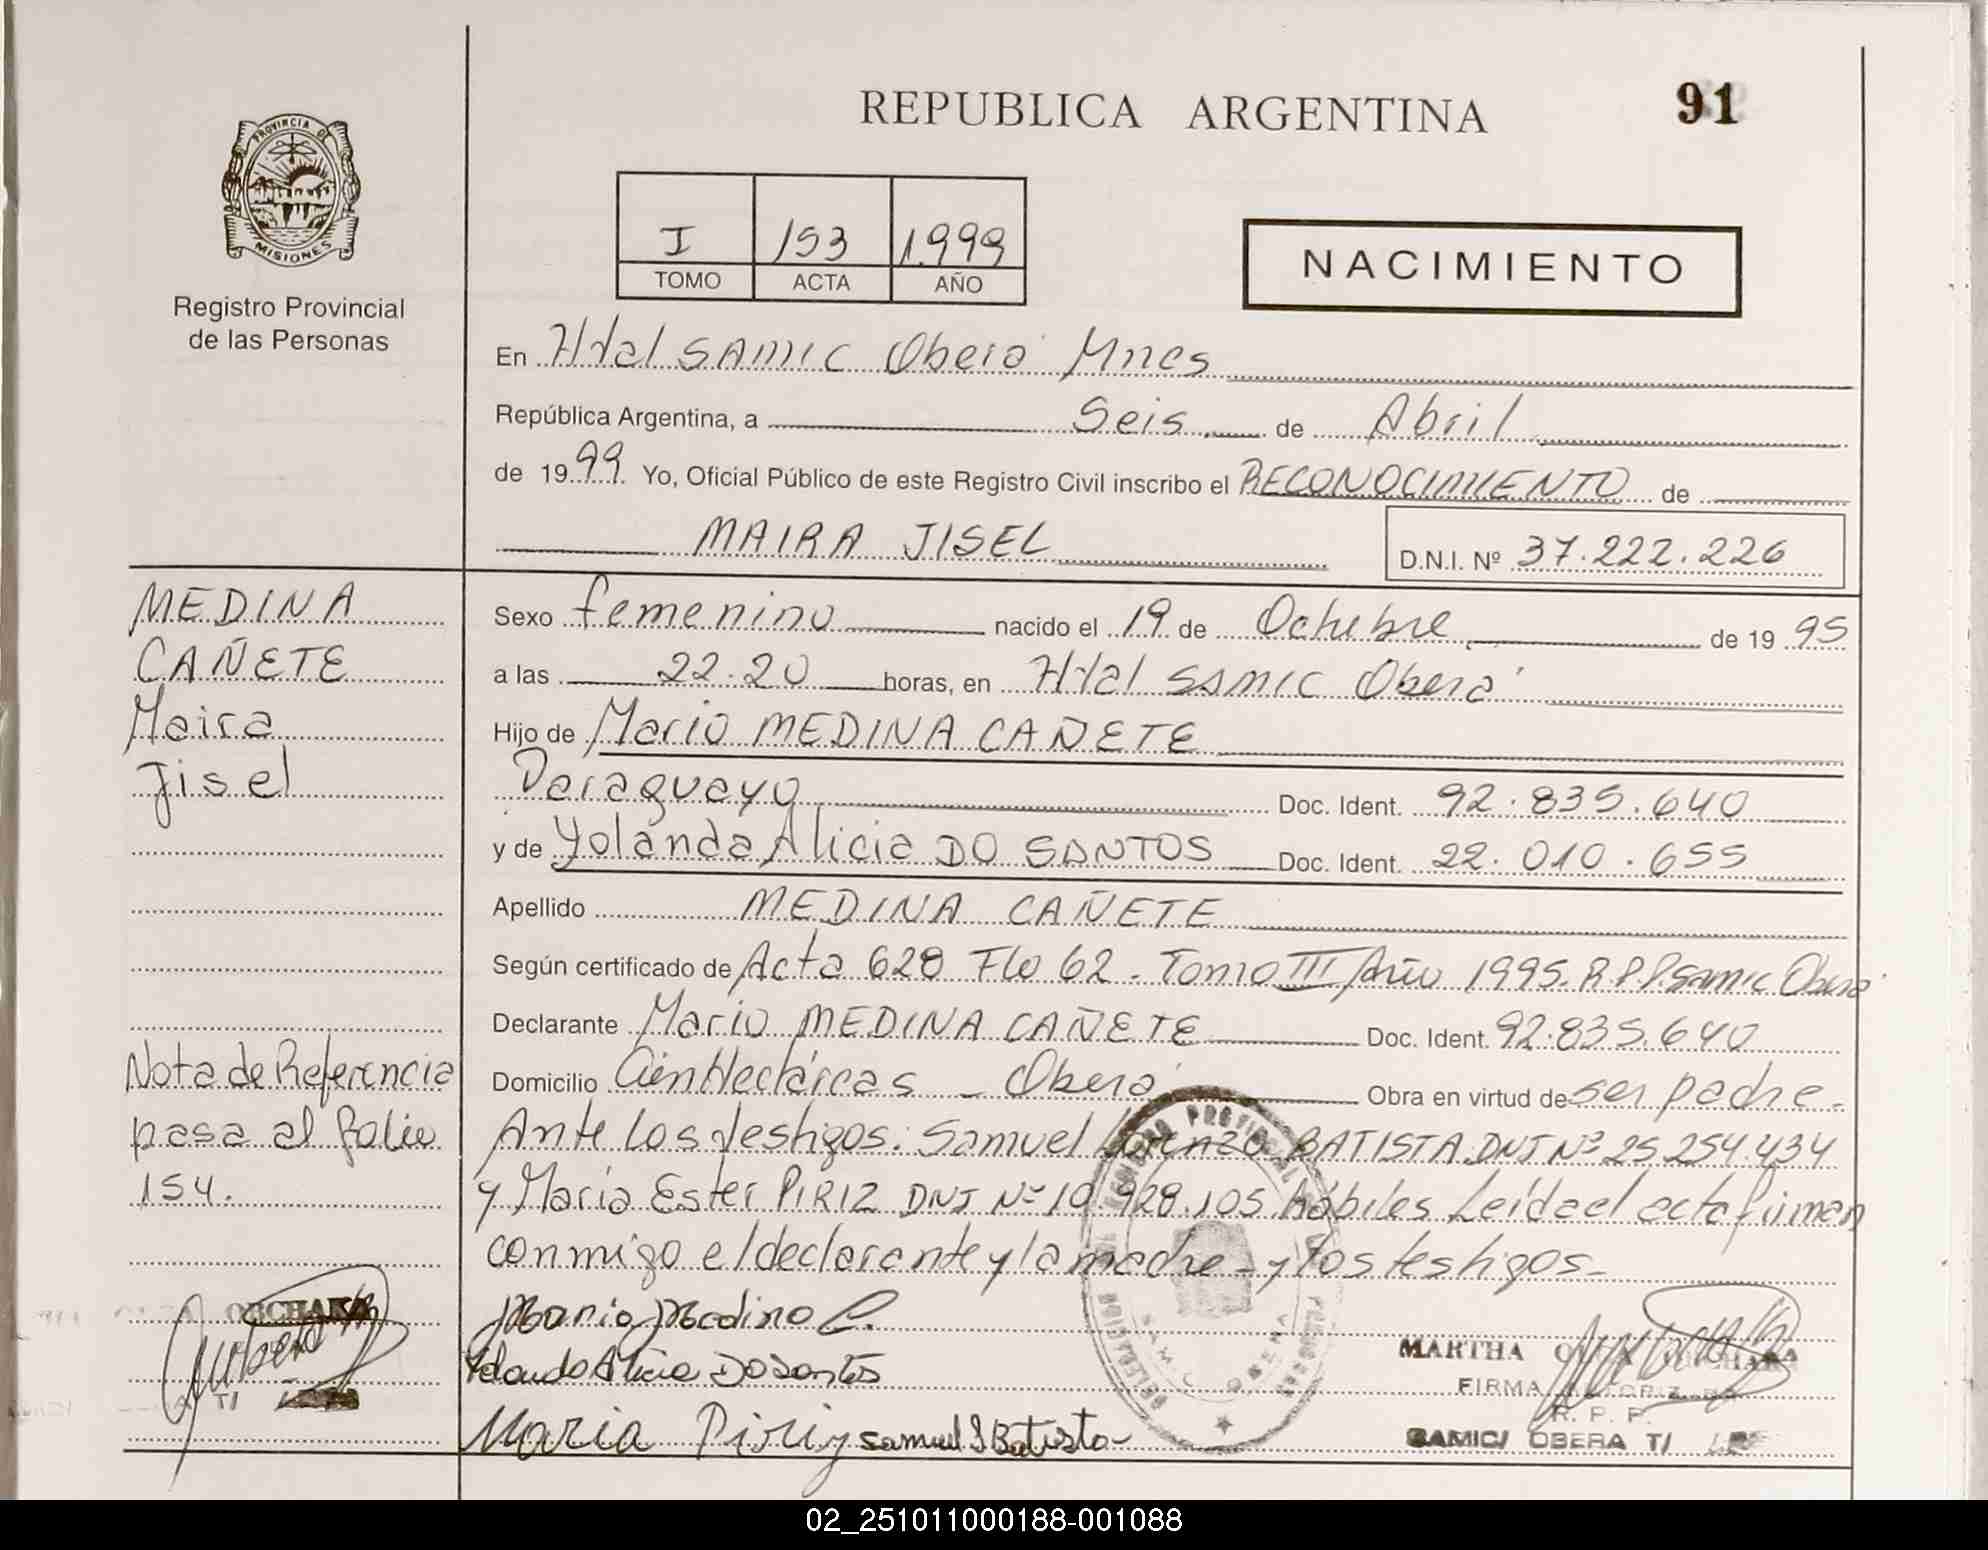 REPUBLICA ARGENTINA
91
PROVINCIA DE
MISIONES
Registro Provincial
de las Personas
I 153 1.999
TOMO ACTA AÑO
NACIMIENTO
En Htal SAMIC Oberá Mnes
República Argentina, a Seis de Abril
de 1999 Yo, Oficial Público de este Registro Civil inscribo el RECONOCIMIENTO de
MAIRA JISEL D.N.I. Nº 37.222.226
MEDINA
CAÑETE
Maira
Jisel
Sexo femenino nacido el 19 de Octubre de 1995
a las 22.20 horas, en Htal SAMIC Oberá
Hijo de Mario MEDINA CAÑETE
Paraguayo Doc. Ident. 92.835.640
y de Yolanda Alicia DO SANTOS Doc. Ident. 22.010.655
Apellido MEDINA CAÑETE
Según certificado de Acta 628 Flo 62. Tomo III Año 1995. R.P.P. Samic Oberá
Declarante Mario MEDINA CAÑETE Doc. Ident. 92.835.640
Domicilio Cien Hectáreas - Oberá Obra en virtud de ser padre.
Ante los testigos: Samuel Lorenzo BATISTA DNI Nº 25.254.434
y María Ester PIRIZ DNI Nº 10.928.105 hábiles Leída el acta firman
conmigo el declarante y la madre - y los testigos -
Nota de Referencia
pasa al folio
154.
Mario Medina C.
Yolanda Alicia Do Santos
Maria Piriz Samuel L Batista
MARTHA OBCHAKA
FIRMA
R. P. P.
SAMIC/ OBERA T/
OBCHAKA
T/
02_251011000188-001088